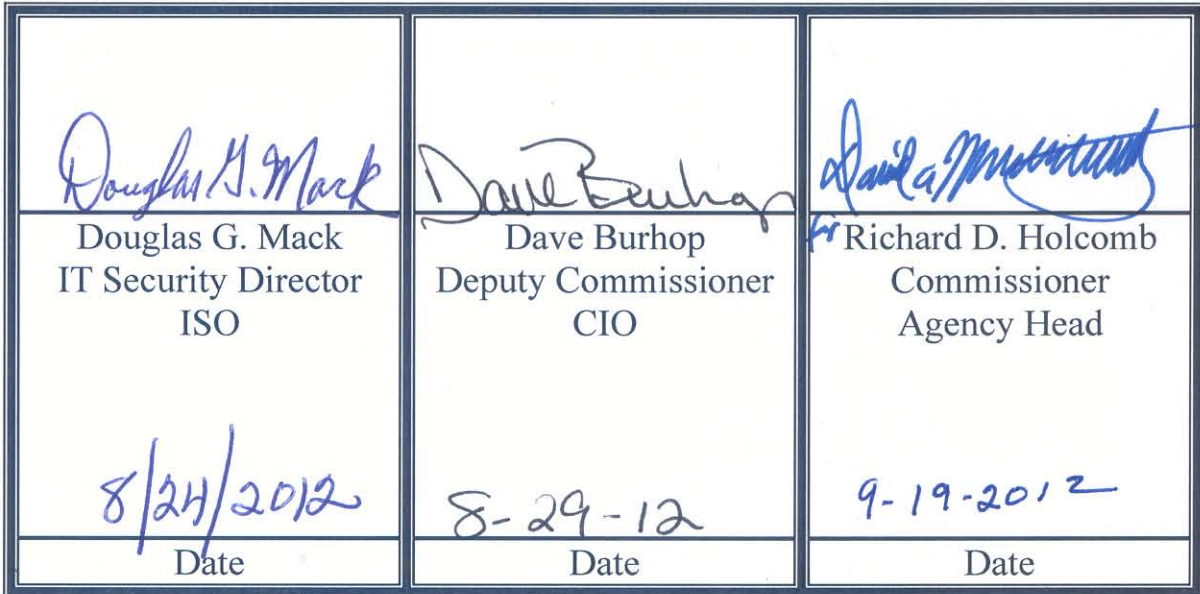 Douglas G. Mack
Douglas G. Mack
IT Security Director
ISO
8/24/2012
Date
Dave Burhop
Dave Burhop
Deputy Commissioner
CIO
8-29-12
Date
David a
for Richard D. Holcomb
Commissioner
Agency Head
9-19-2012
Date